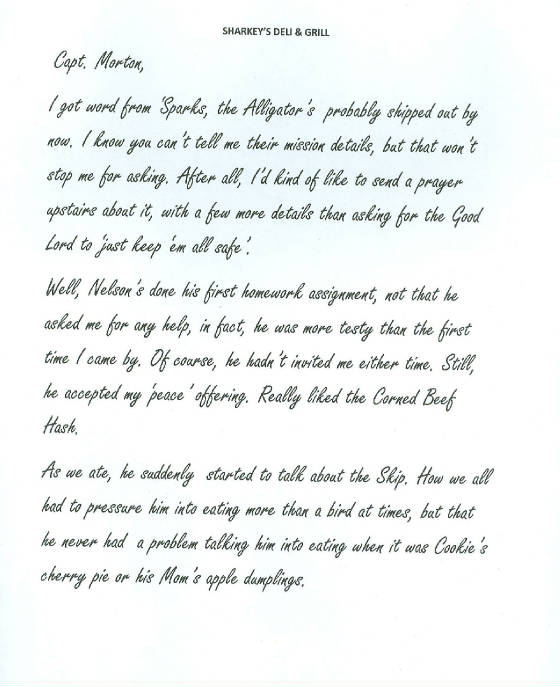 SHARKEY'S DELI & GRILL
Capt. Morton,
I got word from 'Sparks, the Alligator's probably shipped out by
now. I know you can't tell me their mission details, but that won't
stop me for asking. After all, I'd kind of like to send a prayer
upstairs about it, with a few more details than asking for the Good
Lord to 'just keep 'em all safe'.
Well, Nelson's done his first homework assignment, not that he
asked me for any help, in fact, he was more testy than the first
time I came by. Of course, he hadn't invited me either time. Still,
he accepted my 'peace' offering. Really liked the Corned Beef
Hash.
As we ate, he suddenly started to talk about the Skip. How we all
had to pressure him into eating more than a bird at times, but that
he never had a problem talking him into eating when it was Cookie's
cherry pie or his Mom's apple dumplings.